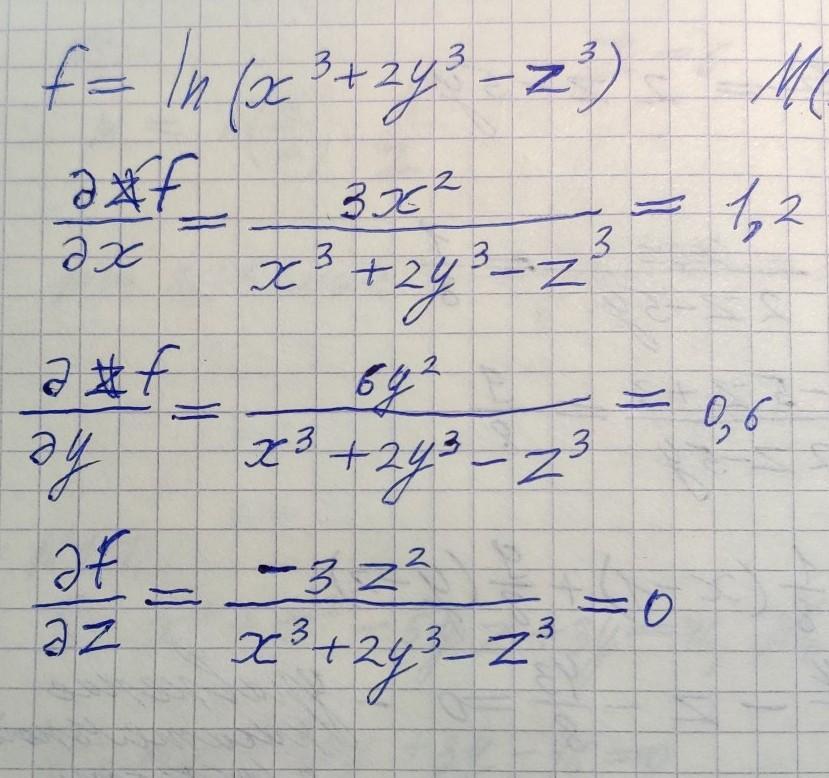 f = ln(x³+2y³-z³) M(
∂f/∂x = 3x²/(x³+2y³-z³) = 1,2
∂f/∂y = 6y²/(x³+2y³-z³) = 0,6
∂f/∂z = -3z²/(x³+2y³-z³) = 0